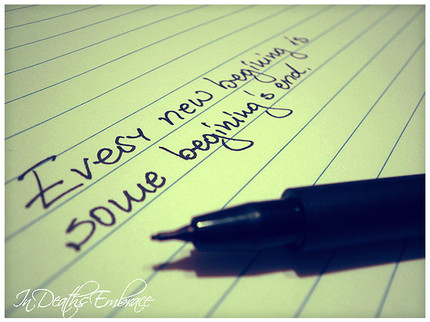 Every new begining is
some begining's end.
In Deaths Embrace